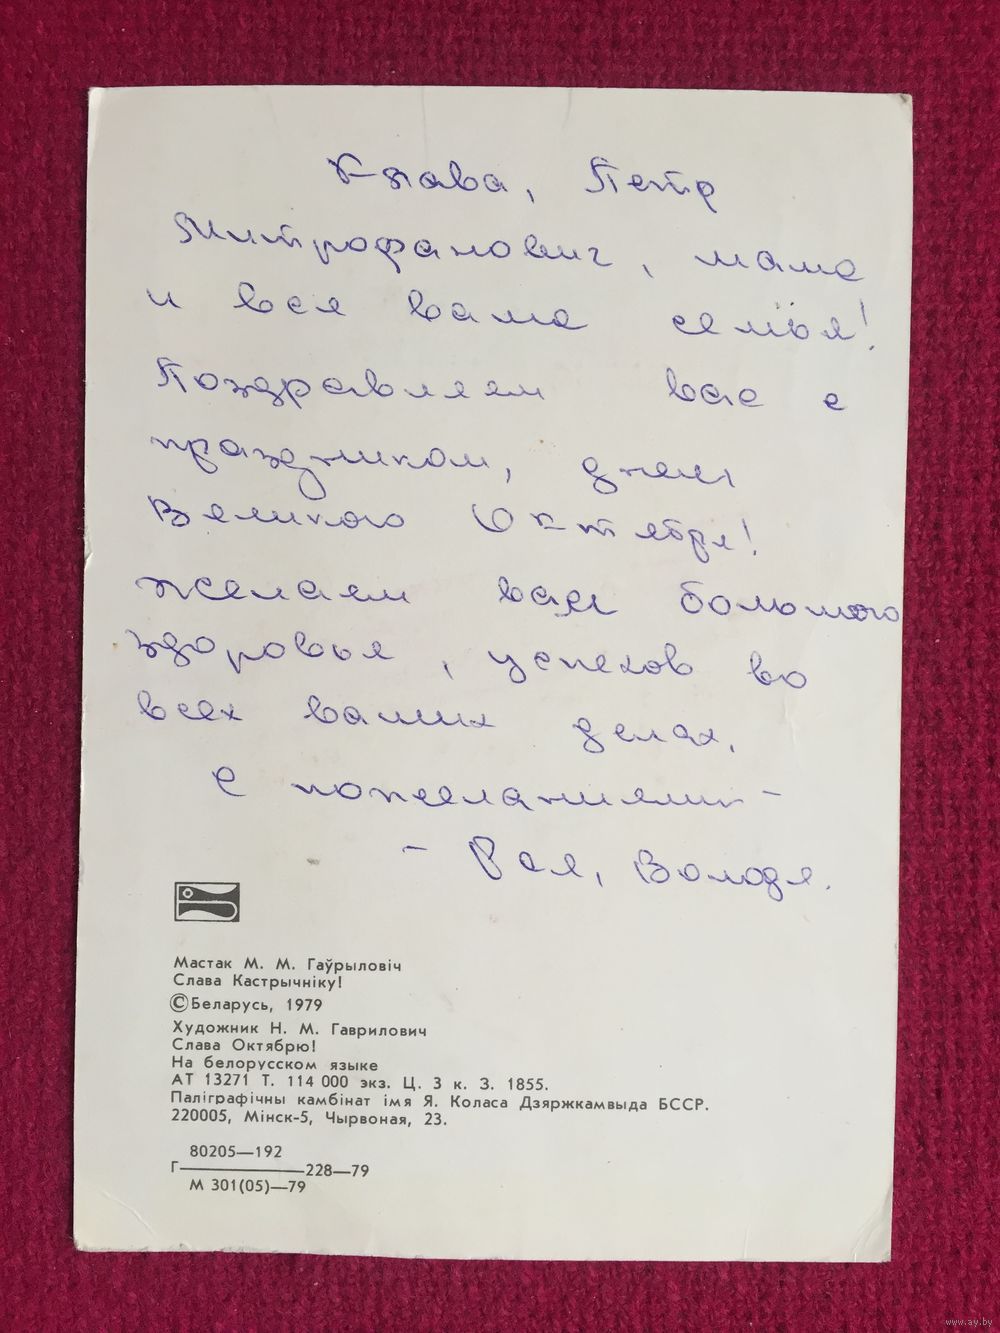 Клава, Петр
Митрофанович, мама
и вся ваша семья!
Поздравляем вас с
праздником, днем
Великого Октября!
Желаем вам большого
здоровья, успехов во
всех ваших делах.
С пожеланиями -
- Рая, Володя.
Мастак М. М. Гаўрыловіч
Слава Кастрычніку!
©Беларусь, 1979
Художник Н. М. Гаврилович
Слава Октябрю!
На белорусском языке
АТ 13271 Т. 114 000 экз. Ц. 3 к. З. 1855.
Паліграфічны камбінат імя Я. Коласа Дзяржкамвыда БССР.
220005, Мінск-5, Чырвоная, 23.
80205—192
Г————228—79
М 301(05)—79
www.ay.by